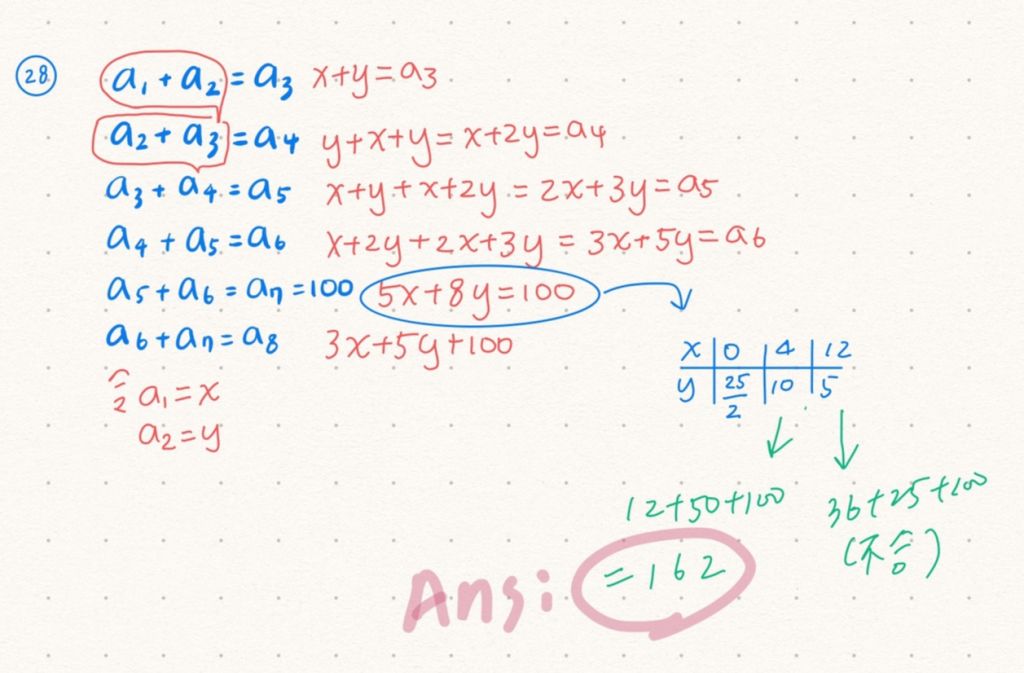 28
a₁ + a₂ = a₃ x+y=a₃
a₂ + a₃ = a₄ y+x+y=x+2y=a₄
a₃ + a₄ = a₅ x+y+x+2y=2x+3y=a₅
a₄ + a₅ = a₆ x+2y+2x+3y=3x+5y=a₆
a₅ + a₆ = a₇ = 100 5x+8y=100
a₆ + a₇ = a₈ 3x+5y+100
x 0 4 12
y 25/2 10 5
令 a₁=x
a₂=y
12+50+100
=162
36+25+100
(不合)
Ans: